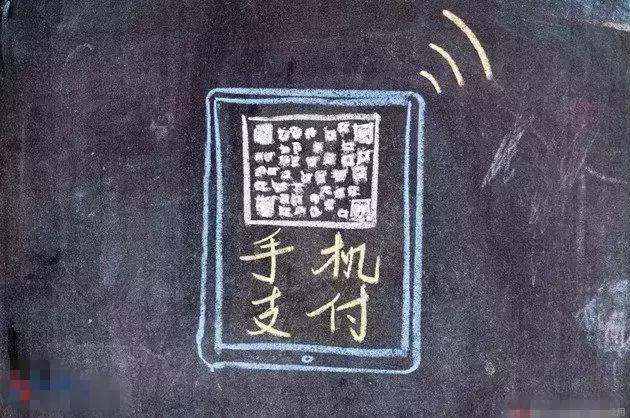 手机
支付